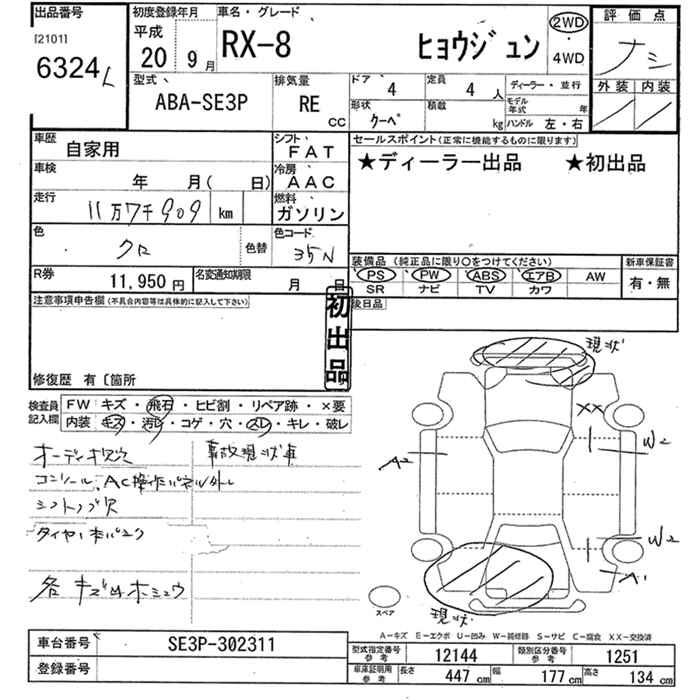 出品番号
[2101]
6324
初度登録年月
平成
20 9月
車名・グレード
RX-8 ヒョウジュン
2WD
4WD
評価点
ナシ
外装 内装
型式
ABA-SE3P
排気量
RE
CC
ドア 4
定員 4 人
形状
クーペ
積載
kg
ディーラー・並行
モデル年式 年
ハンドル 左・右
車歴
自家用
シフト
FAT
車検
年 月( 日)
冷房
AAC
走行
11万7千909 km
燃料
ガソリン
色
クロ
色替
色コード
35N
セールスポイント(正常に機能するものに限ります)
★ディーラー出品 ★初出品
装備品 (純正品に限り〇をつけてください)
PS PW ABS エアB AW
SR ナビ TV カワ
新車保証書
有・無
R券
11,950円
名変通知期限
月 日
後日品
注意事項申告欄(不具合内容等は具体的に記入して下さい)
初出品
修復歴 有〔箇所
検査員記入欄
FW キズ・飛石・ヒビ割・リペア跡・×要
内装 キズ・汚レ・コゲ・穴・スレ・キレ・破レ
オーディオ欠 事故現状車
コンソール、AC操作パネル外し
シフトノブ欠
各キズ
現状
XX
W2
A2
W2
A1
現状
スペア
A-キズ E-エクボ U-凹み W-補修跡 S-サビ C-腐食 XX-交換済
車台番号
SE3P-302311
登録番号
型式指定番号参考
12144
類別区分番号参考
1251
車庫証明用参考
長さ 447 cm
幅 177 cm
高さ 134 cm